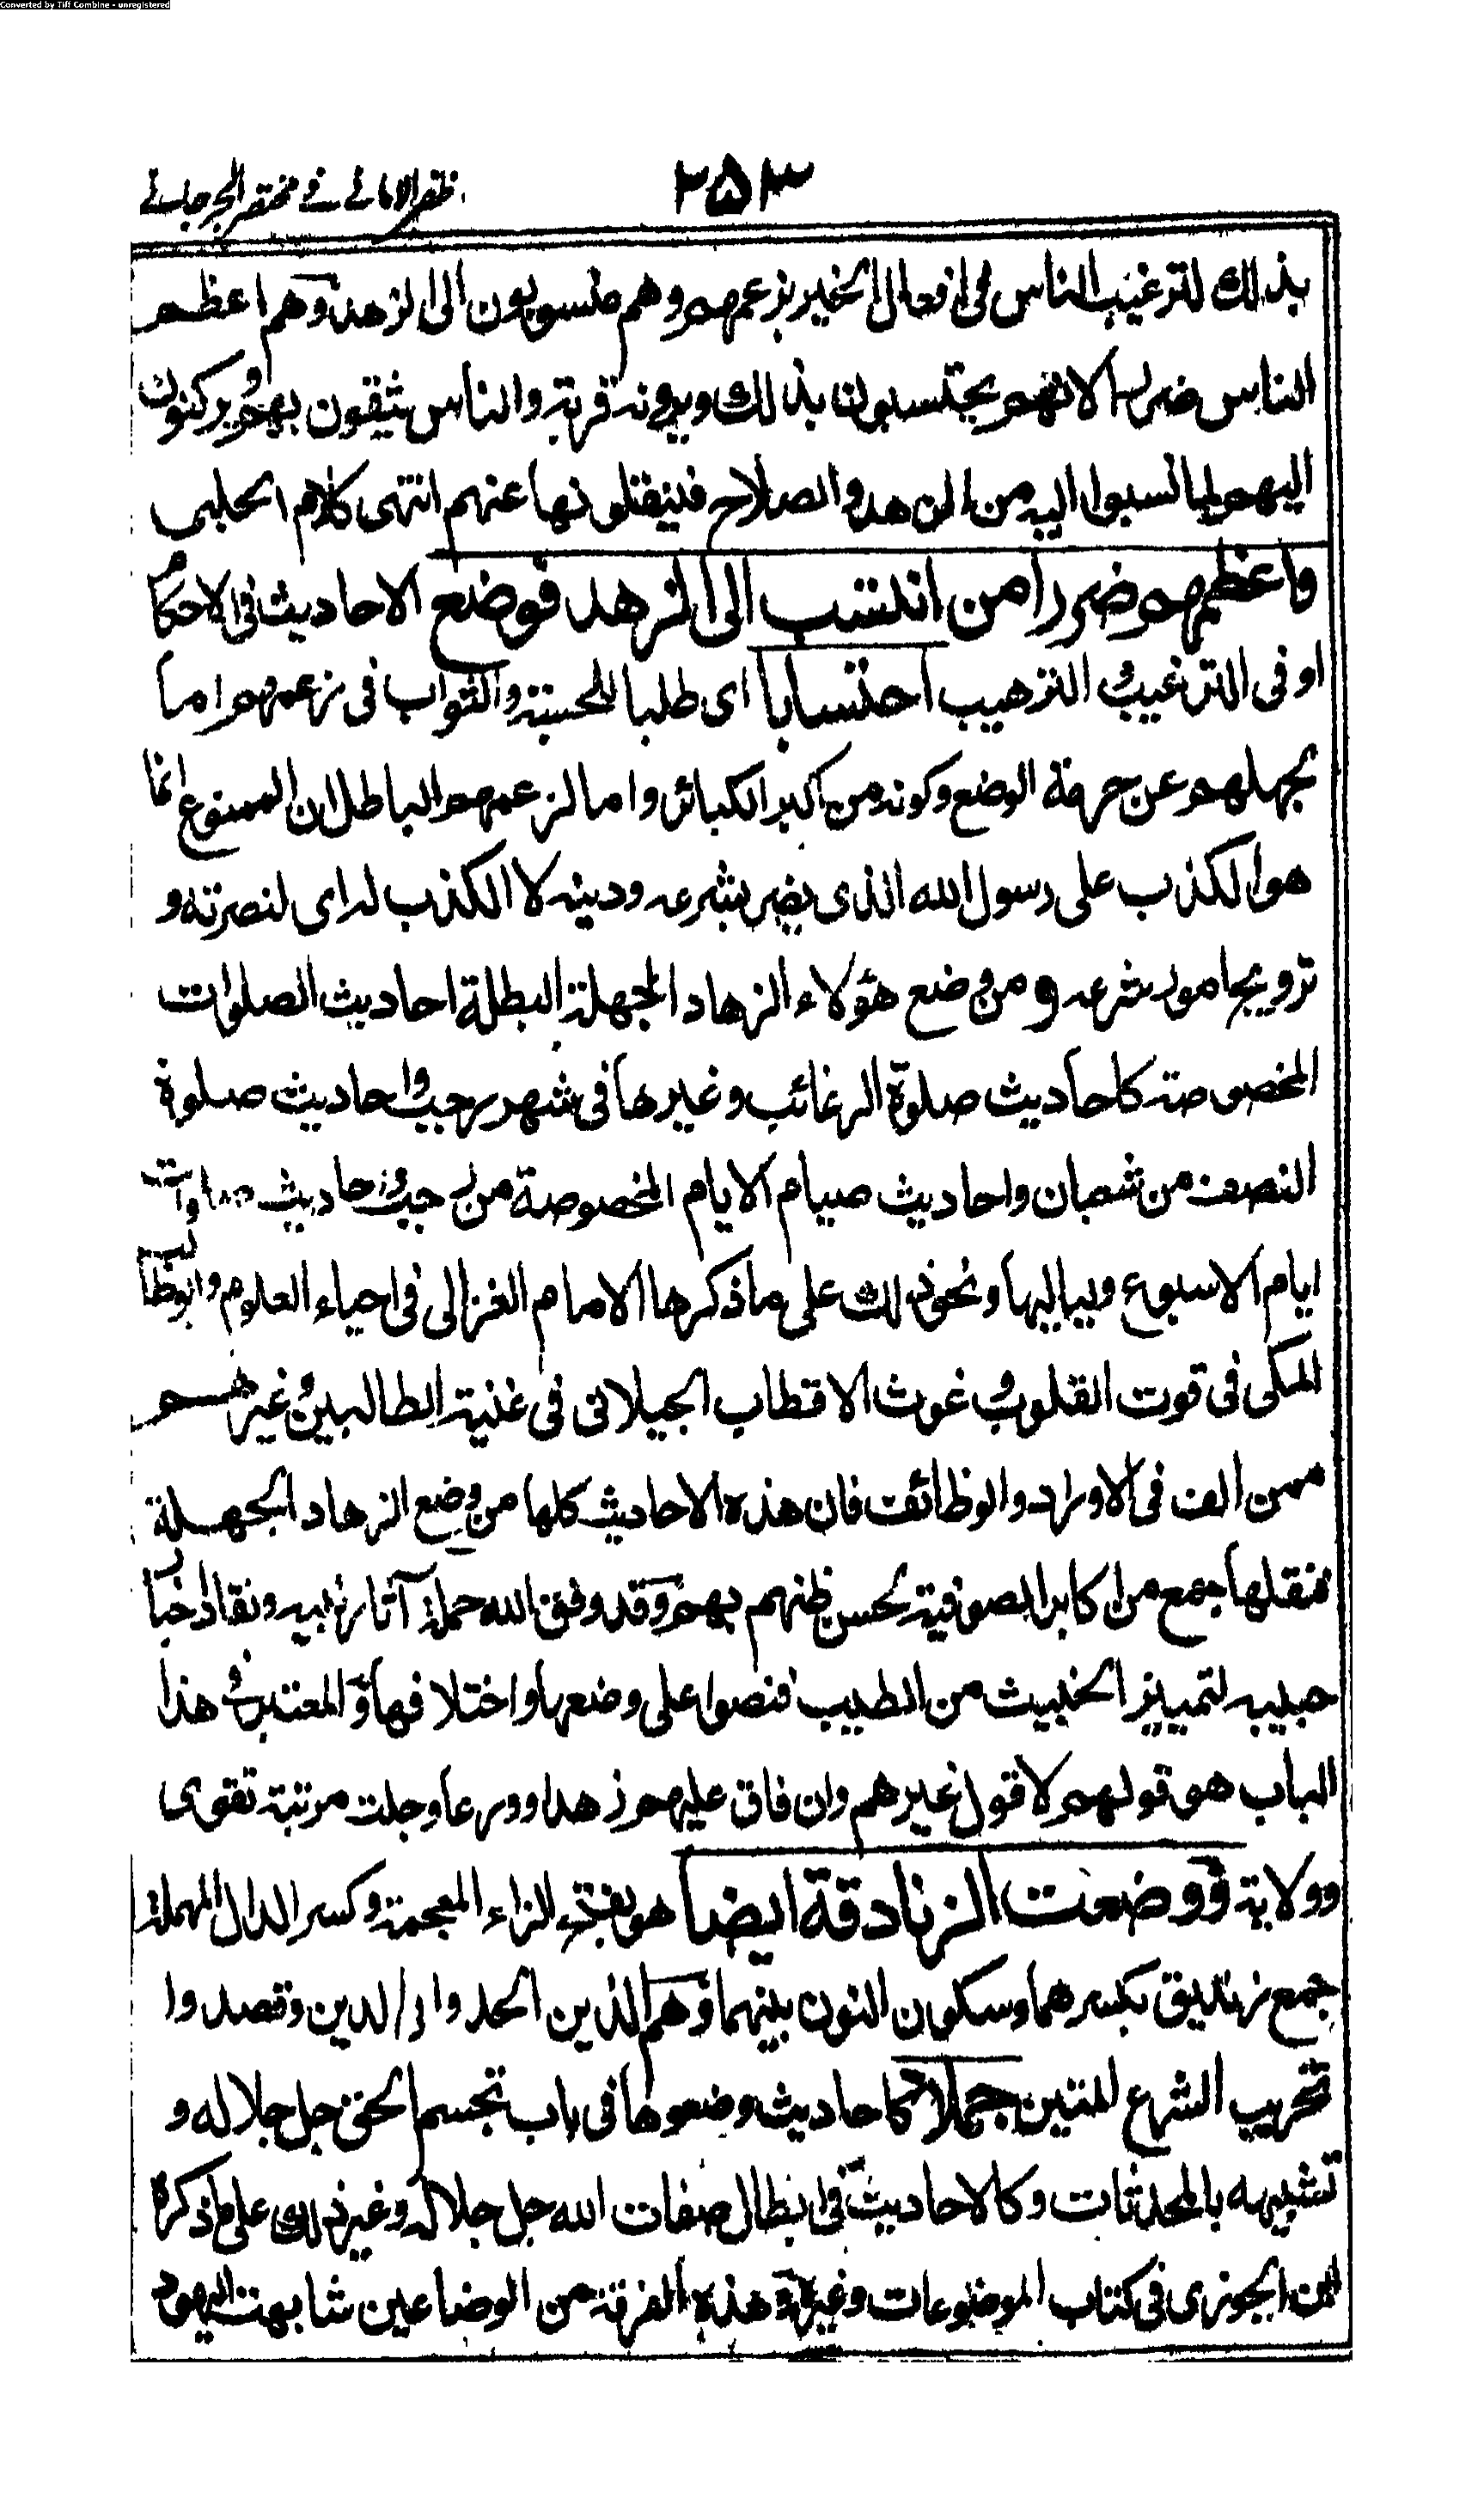 Converted by Tiff Combine - unregistered
ظفر الامانے فے مختصر الجرجانے
۲۵۳
بذلك لترغيب الناس فى افعال الخير بزعمهم وهم منسوبون الى الزهد وهم اعظم
الناس ضررا لانهم يحتسبون بذلك ويرونه قربة والناس يثقون بهم ويركنون
اليهم لما نسبوا اليه من الزهد والصلاح فينقلونها عنهم انتهى كلام الحلبى
واعظمهم ضررا من انتسب الى الزهد فوضع الاحاديث فى الاحكام
او فى الترغيب والترهيب احتسابا اى طلبا للحسبة والثواب فى زعمهم اما
بجهلهم عن حرمة الوضع وكونه من اكبر الكبائر واما لزعمهم الباطل ان الممنوع انما
هو الكذب على رسول الله الذى يضر بشرعه ودينه لا الكذب له اى لنصرته و
ترويج امور شرعه ومن وضع هؤلاء الزهاد الجهلة البطلة احاديث الصلوات
المخصوصة كاحاديث صلوة الرغائب وغيرها فى شهر رجب واحاديث صلوة
النصف من شعبان واحاديث صيام الايام المخصوصة من رجب واحاديث صلوات
ايام الاسبوع ولياليها ونحو ذلك على ما ذكرها الامام الغزالى فى احياء العلوم وابو طالب
المكى فى قوت القلوب وغوث الاقطاب الجيلانى فى غنية الطالبين وغيرهم
ممن الف فى الاوراد والوظائف فان هذه الاحاديث كلها من وضع الزهاد الجهلة
فنقلها جمع من اكابر الصوفية لحسن ظنهم بهم وقد وفق الله حملة آثار نبيه ونقاد اخبار
حبيبه لتمييز الخبيث من الطيب فنصوا على وضعها واختلافها والمعتبر فى هذا
الباب هو قولهم لا قول غيرهم وان فاق عليهم زهدا وورعا وجلت مرتبة تقوى
وولاية ووضعت الزنادقة ايضا هو بفتح الزاء المعجمة وكسر الدال المهملة
جمع زنديق بكسرهما وسكون النون بينهما وهم الذين الحدوا فى الدين وقصدوا
تخريب الشرع المتين جملا كاحاديث وضعوها فى باب تجسم الحق جل جلاله و
تشبيهه بالمحدثات وكالاحاديث فى ابطال صفات الله جل جلاله وغير ذلك على ما ذكره
ابن الجوزى فى كتاب الموضوعات وغيره وهذه الفرقة من الوضاعين شابهت اليهود